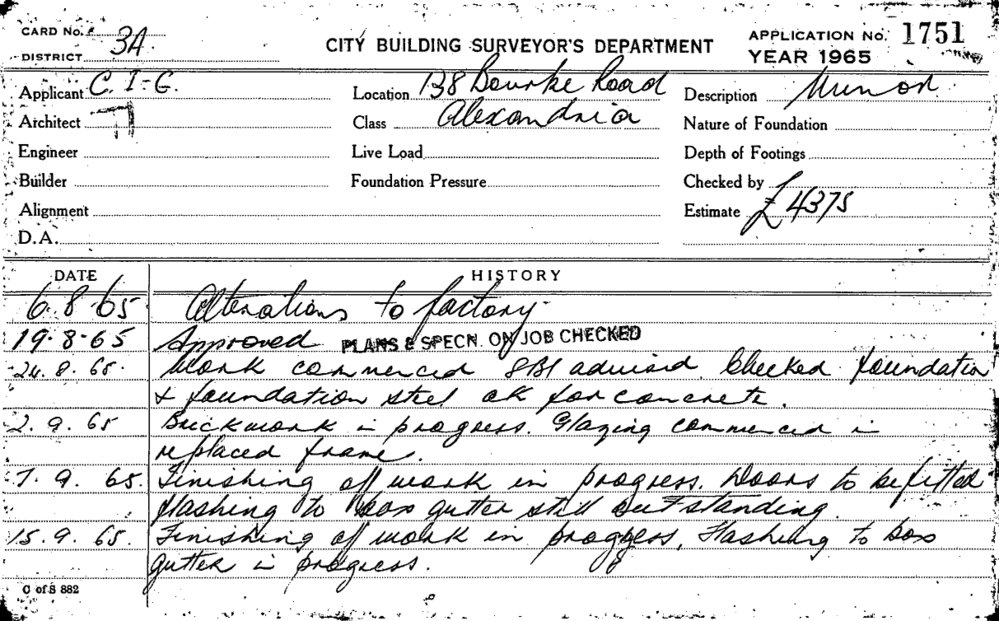 CARD No.
DISTRICT 3A
CITY BUILDING SURVEYOR'S DEPARTMENT
APPLICATION No. 1751
YEAR 1965
Applicant C. I-G.
Location 138 Bourke Road
Description Minor
Architect
Class Alexandria
Nature of Foundation
Engineer
Live Load
Depth of Footings
Builder
Foundation Pressure
Checked by
Alignment
Estimate £4375
D.A.
DATE HISTORY
6.8.65. Alterations to factory.
19.8.65 Approved PLANS & SPECN. ON JOB CHECKED
24.8.65. Work commenced advised. Checked foundation
& foundation steel ok for concrete.
2.9.65 Brickwork in progress. Glazing commenced in
replaced frame.
7.9.65. Finishing off work in progress. Doors to be fitted
flashing to box gutter still outstanding.
15.9.65. Finishing off work in progress, Flashing to box
gutter in progress.
C of S 882